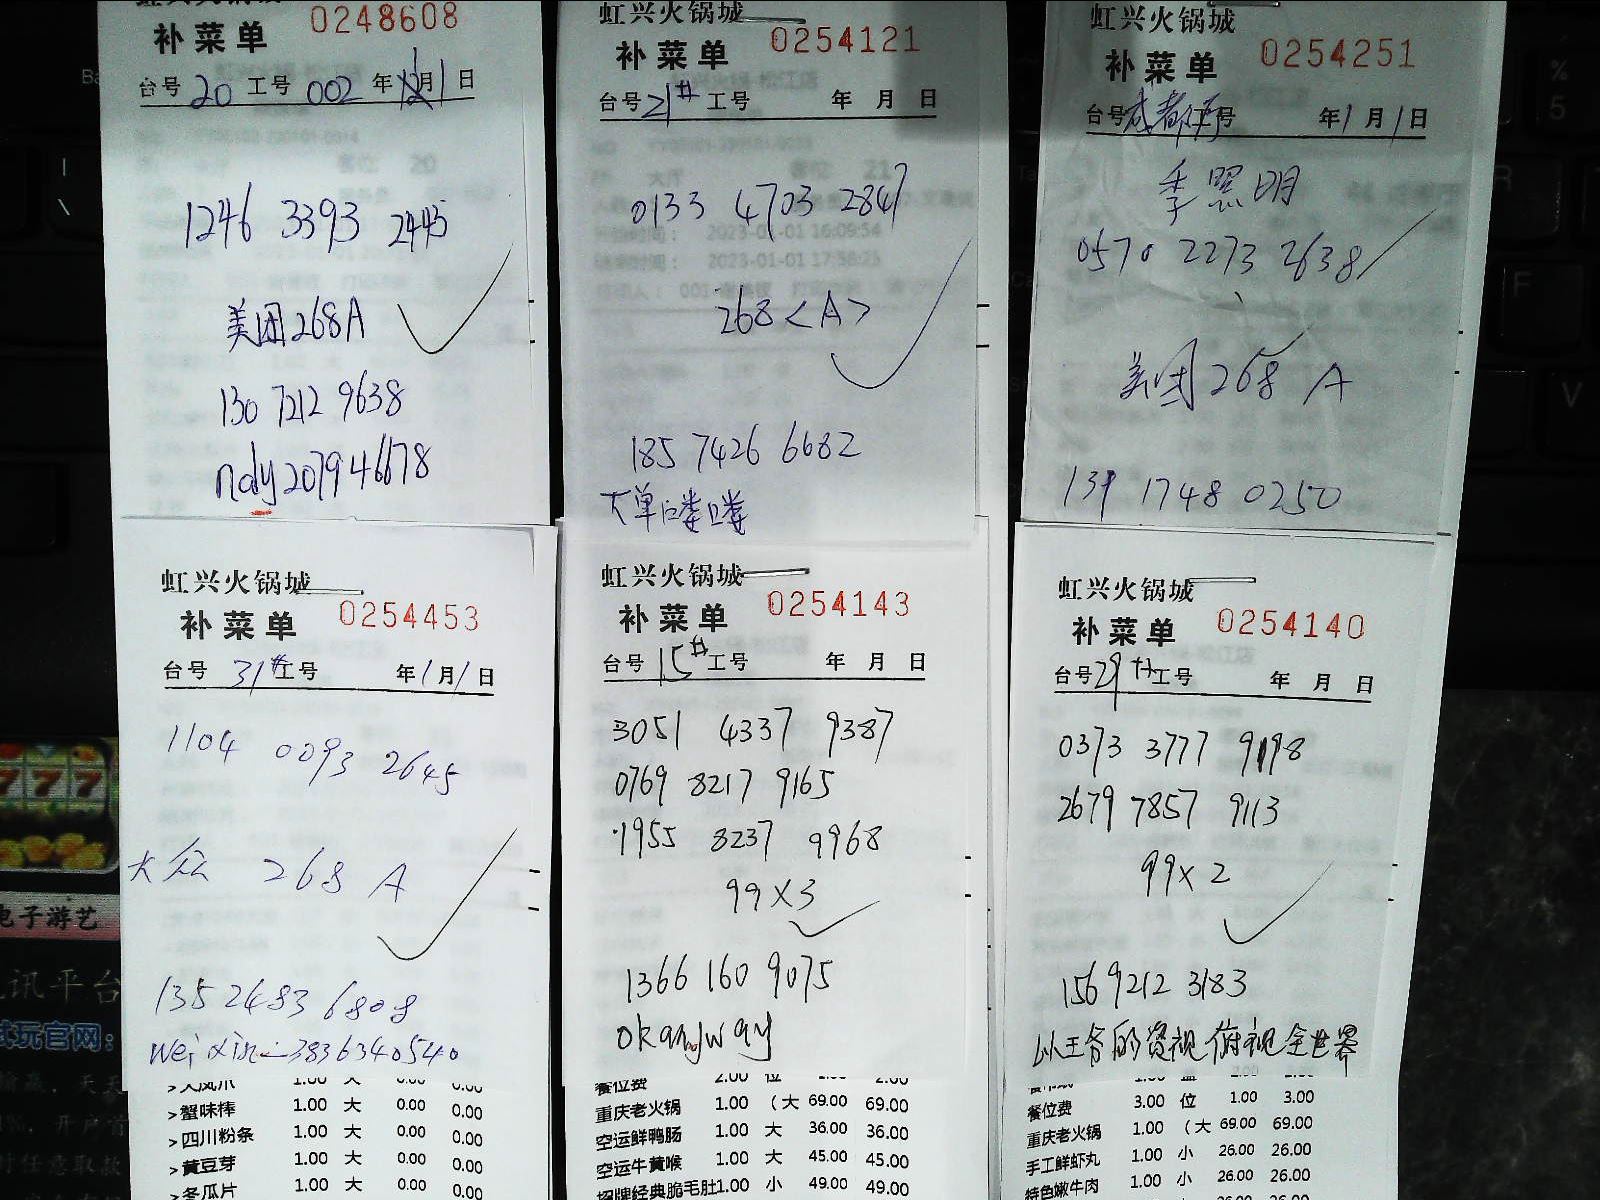 虹兴火锅城
补菜单 0248608
台号 20 工号 002 年 12月1日
1246 3393 2445
美团268A
130 7212 9638
ndy207946678
虹兴火锅城
补菜单 0254121
台号 21# 工号 年 月 日
0133 4703 2847
268<A>
185 7426 6682
虹兴火锅城
补菜单 0254251
台号 成都厅 工号 年1月1日
季照明
0570 2273 2638
美团 268 A
139 1748 0250
虹兴火锅城
补菜单 0254453
台号 31# 工号 年1月1日
1104 0093 2645
大众 268 A
135 2483 6808
weixin_3836340540
>大凤爪 1.00 大 0.00 0.00
>蟹味棒 1.00 大 0.00 0.00
>四川粉条 1.00 大 0.00 0.00
>黄豆芽 1.00 大 0.00 0.00
>冬瓜片 1.00 大 0.00 0.00
虹兴火锅城
补菜单 0254143
台号 15# 工号 年 月 日
3051 4337 9387
0769 8217 9165
1955 8237 9968
99×3
1366 160 9075
okanjway
餐位费 2.00 位 2.00
重庆老火锅 1.00 (大 69.00 69.00
空运鲜鸭肠 1.00 大 36.00 36.00
空运牛黄喉 1.00 大 45.00 45.00
招牌经典脆毛肚 1.00 小 49.00 49.00
虹兴火锅城
补菜单 0254140
台号 29# 工号 年 月 日
0373 3777 9198
2679 7857 9113
99×2
156 9212 3183
以王者的资视俯视全世界
餐位费 3.00 位 1.00 3.00
重庆老火锅 1.00 (大 69.00 69.00
手工鲜虾丸 1.00 小 26.00 26.00
特色嫩牛肉 1.00 小 26.00 26.00
电子游艺
讯平台
试玩官网: